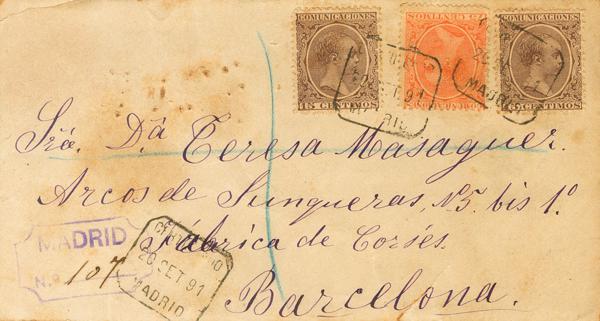 COMUNICACIONES
COMUNICACIONES
15 CENTIMOS
MADRID
MADRID
Sra. Dª Teresa Masaguer.
Arcos de Junqueras, Nº5. bis 1º
Fábrica de Corsés.
Barcelona.
MADRID
Nº 107
CERTIFICADO
20 SET 91
MADRID